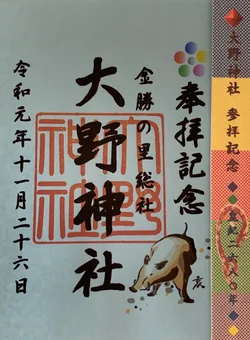 大野神社 參拝記念 皇紀二六八〇年
奉拝記念
亥
金勝の里総社
大野神社
大野神社
令和元年十一月二十六日